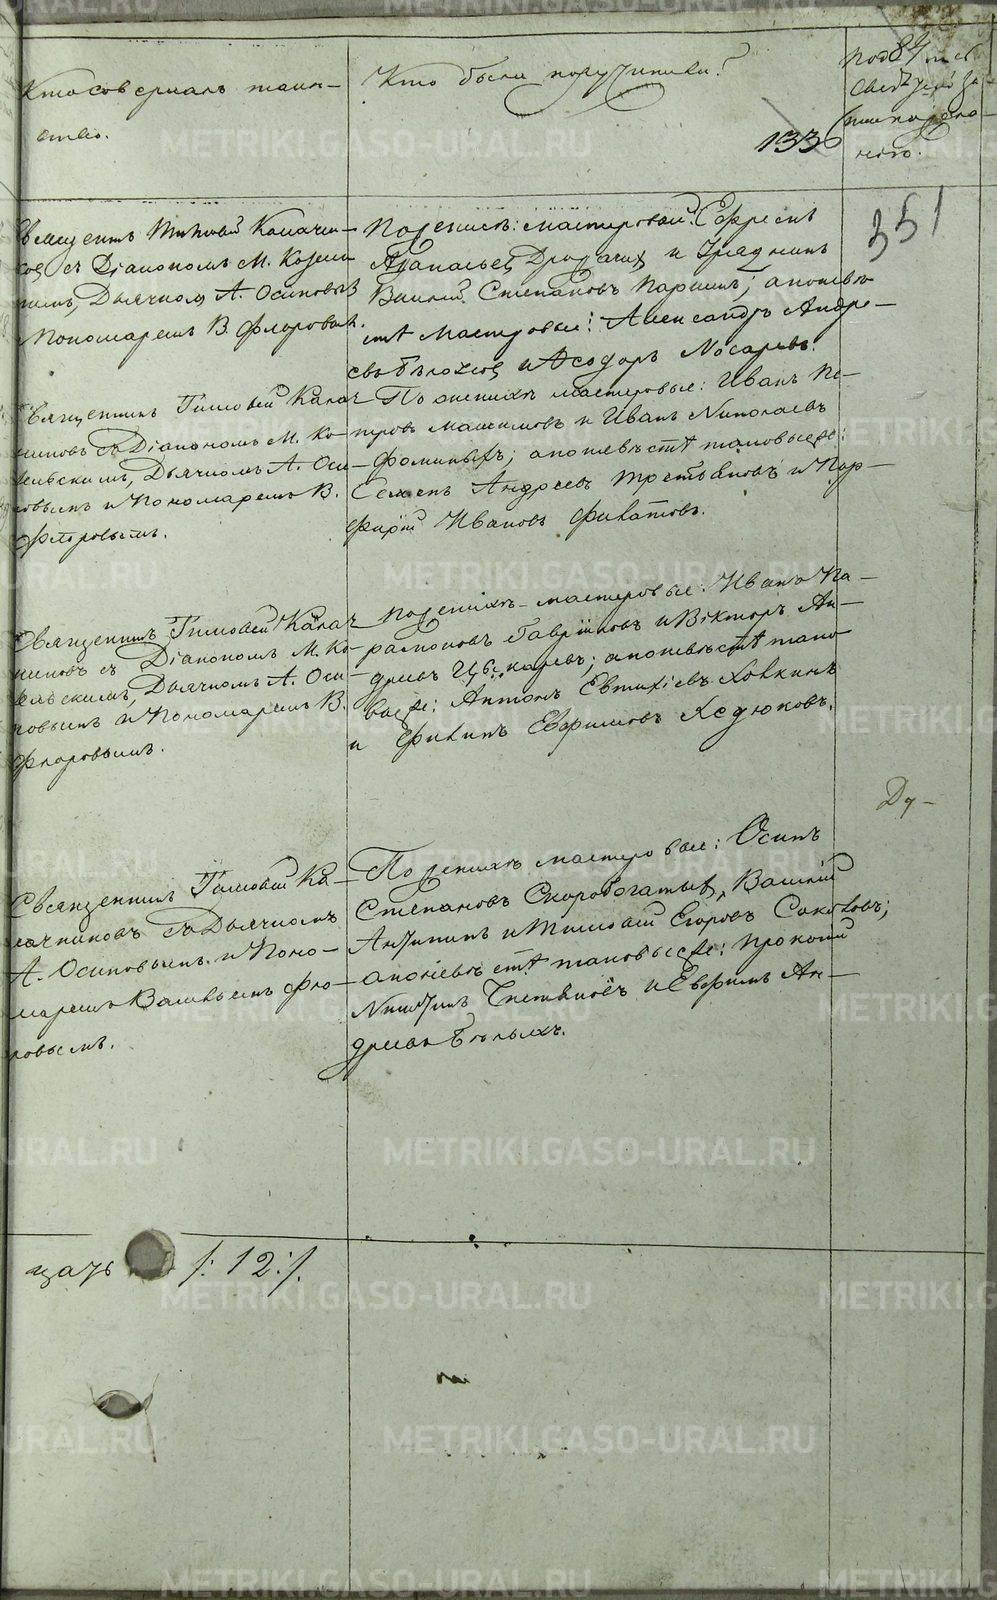 Кто совершалъ таин-
ство.
Кто были поручители?
133
351
Священникъ Тимофей Калачни-
ковъ съ Діакономъ М. Козель-
скимъ, Дьячкомъ А. Осиповымъ
Пономаремъ В. Флоровым.
По женихѣ: мастеровой Ефремъ
и Урядникъ
Василій Степановъ Паршинъ; а по невѣ-
стѣ мастеровые: Александръ Андре-
евъ и Ѳеодоръ Носаревъ.
Священникъ Тимофей Калач-
никовъ съ Діакономъ М. Ко-
зельскимъ, Дьячкомъ А. Оси-
повымъ и Пономаремъ В.
Флоровымъ.
По женихѣ мастеровые: Иванъ Пе-
тровъ Максимовъ и Иванъ Николаевъ
Фоминыхъ; а по невѣстѣ таковыеже:
Семенъ Андреевъ Третьяковъ и Пор-
фирій Ивановъ Филатовъ.
Священникъ Тимофей Калач-
никовъ съ Діакономъ М. Ко-
зельскимъ, Дьячкомъ А. Оси-
повымъ и Пономаремъ В.
Флоровымъ.
По женихѣ мастеровые: Иванъ Па-
рамоновъ Гавриловъ и Викторъ Ан-
дреевъ; а по невѣстѣ тако-
выеже: Антонъ Евтихіевъ Ховкинъ
и Филипъ Евфимовъ Хедюковъ.
Ду-
Священникъ Тимофей Ка-
лачниковъ съ Дьячкомъ
А. Осиповымъ и Поно-
маремъ Васильемъ Фло-
ровымъ.
По женихѣ мастеровые: Осипъ
Степановъ Скоробогатыхъ, Василій
Антипинъ и Тимофей Егоровъ Соколовъ;
а по невѣстѣ таковыеже: Прокопій
Никитинъ и Евфимъ Ан-
дреевъ Бѣлыхъ.
цать /:12:/.
METRIKI.GASO-URAL.RU